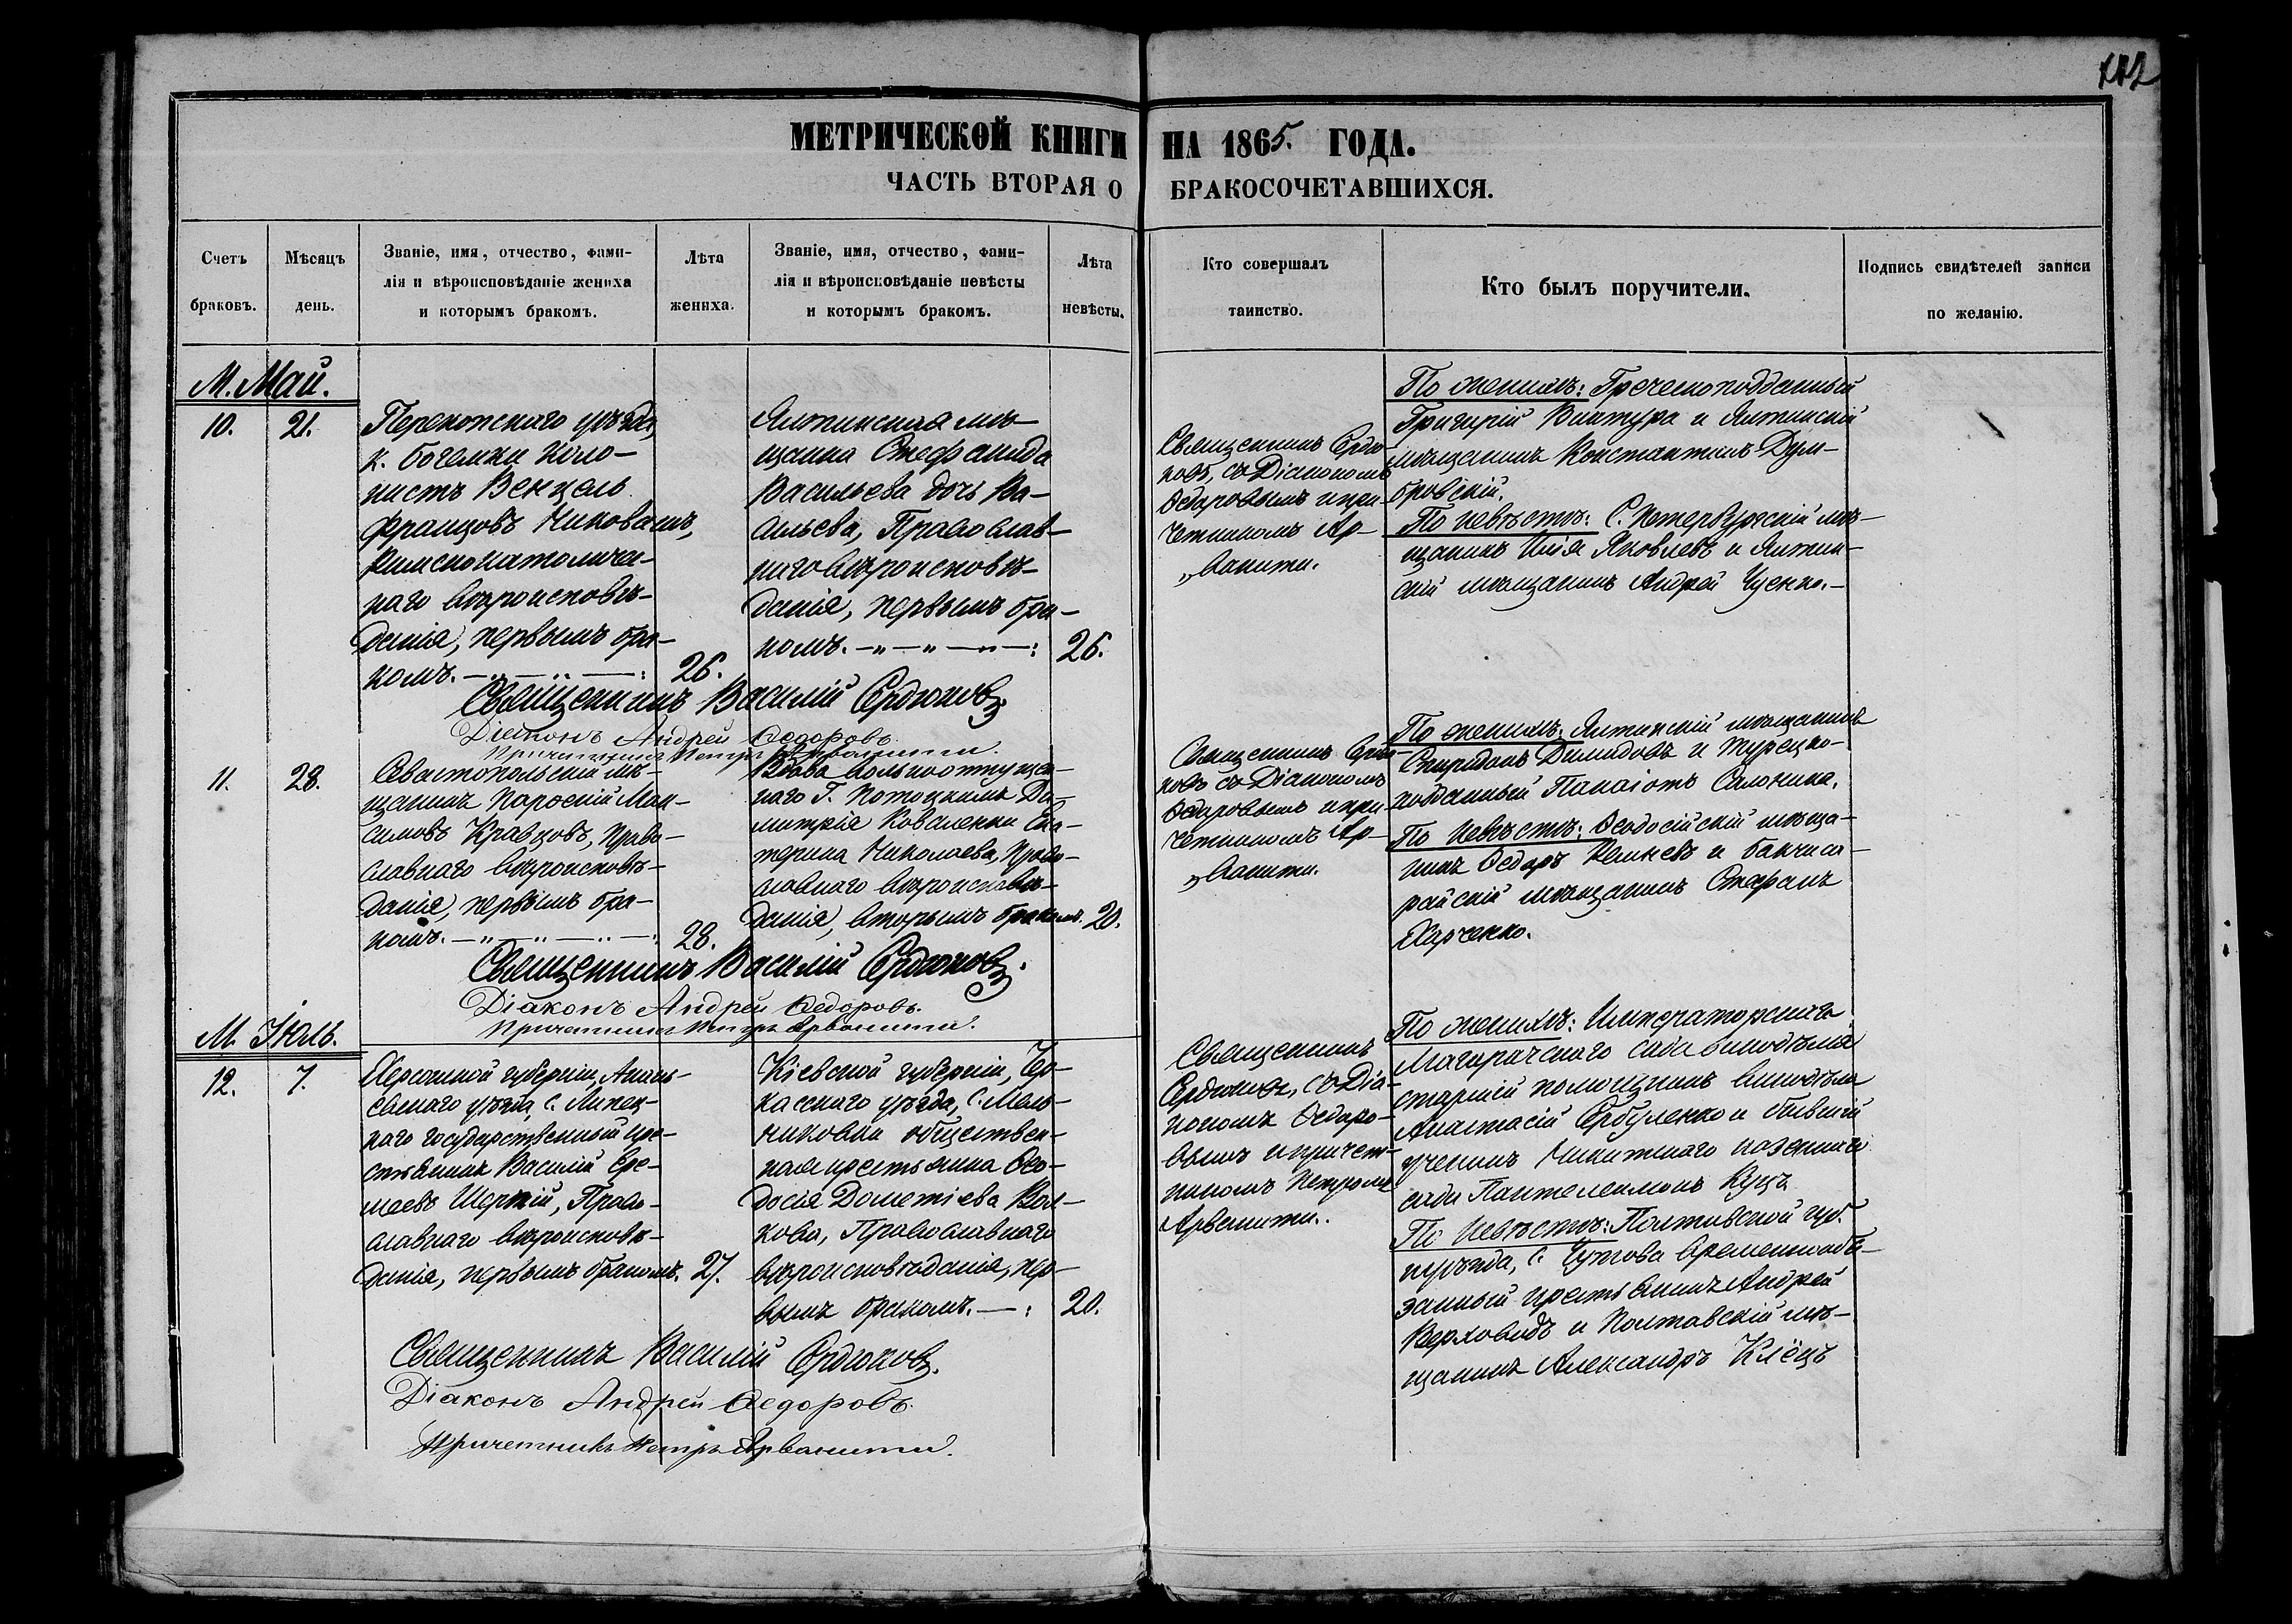 МЕТРИЧЕСКОЙ КНИГИ НА 1865. ГОДА.
ЧАСТЬ ВТОРАЯ О БРАКОСОЧЕТАВШИХСЯ.
Счетъ
браковъ.
Мѣсяцъ
день.
Званіе, имя, отчество, фами-
лія и вѣроисповѣданіе жениха
и которымъ бракомъ.
Лѣта
жениха.
Званіе, имя, отчество, фами-
лія и вѣроисповѣданіе невѣсты
и которымъ бракомъ.
Лѣта
невѣсты.
Кто совершалъ
таинство.
Кто былъ поручители.
Подпись свидѣтелей записи
по желанію.
М. Май.
10.
21.
Перекопскаго уѣзда,
к. Богемки коло-
нистъ Венцель
Францовъ Чиковашъ,
Римскокатоличе-
каго вѣроисповѣ-
данія, первымъ бра-
комъ.
26.
Ялтинская мѣ-
щанка Стефанида
Васильева дочь Ва-
сильева, Православ-
наго вѣроисповѣ-
данія, первымъ бра-
комъ.
26.
Священникъ Сердю-
ковъ, съ Діакономъ
Ѳедоровымъ и при-
четникомъ Ар-
„ванити.
По женихѣ: Греческоподданный
Григорій Винтура и Ялтинскій
мѣщанинъ Константинъ Дум-
бровскій.
По невѣстѣ: С. Петербургскій мѣ-
щанинъ Илія Яковлевъ и Ялтин-
скій мѣщанинъ Андрей Чуенко.-
Священникъ Василій Сердюковъ.
Діаконъ Андрей Ѳедоровъ.
Причетникъ Петръ Арванити.
11.
28.
Севастопольскій мѣ-
щанинъ Пароскій Мак-
симовъ Кравцовъ, Право-
славнаго вѣроисповѣ-
данія, первымъ бра-
комъ.
28.
Вдова вольноотпущен-
наго Г. Потоцкимъ Ди-
митрія Коваленки Ека-
терина Николаева, Право-
славнаго вѣроисповѣ-
данія, вторымъ бракомъ.
20.
Священникъ Сердю-
ковъ съ Діакономъ
Ѳедоровымъ и при-
четникомъ Ар-
„ванити.
По женихѣ: Ялтинскій мѣщанинъ
Спиридонъ Димидовъ и Турецко-
подданный Панаіотъ Салоника.
По невѣстѣ: Ѳеодосійскій мѣща-
нинъ Ѳедоръ и Бакчиса-
райскій мѣщанинъ Стефанъ
Харченко.
Священникъ Василій Сердюковъ.
Діаконъ Андрей Ѳедоровъ.
Причетникъ Петръ Арванити.
М. Іюль.
12.
7.
Херсонской губерніи, Анань-
евскаго уѣзда, с. Липец-
каго государственный кре-
стьянинъ Василій Ере-
меевъ Шерпій, Право-
славнаго вѣроисповѣ-
данія, первымъ бракомъ.
27.
Кіевской губерніи, Чер-
касскаго уѣзда, с. Мель-
никовки обществен-
ная крестьянка Ѳео-
досія Дометіева Вол-
кова, Православнаго
вѣроисповѣданія, пер-
вымъ бракомъ.
20.
Священникъ
Сердюковъ, съ Діа-
кономъ Ѳедоро-
вымъ и причет-
никомъ Петромъ
Арванити.
По женихѣ: Императорскаго
Магарачскаго сада винодѣлія
старшій помощникъ винодѣла
Анастасій Сербуленко и бывшій
ученикъ Никитскаго казеннаго
сада Пантелеимонъ Куцъ
По невѣстѣ: Полтавской губ.
и уѣзда, с. Чутова временнообя-
занный крестьянинъ Андрей
Верховидъ и Полтавскій мѣ-
щанинъ Александръ Клёцъ
Священникъ Василій Сердюковъ.
Діаконъ Андрей Ѳедоровъ.
Причетникъ Петръ Арванити.